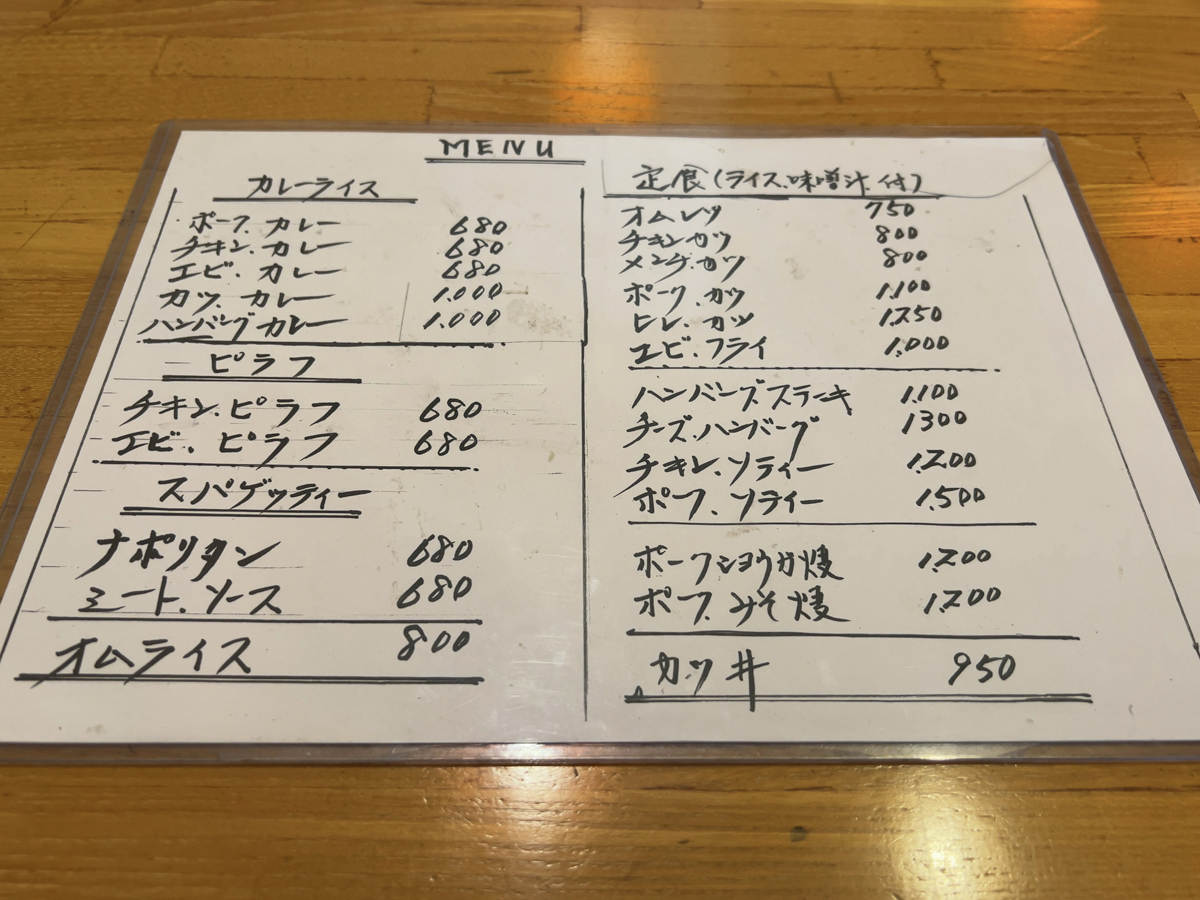 MENU
カレーライス
ポーク.カレー 680
チキン.カレー 680
エビ.カレー 680
カツ.カレー 1.000
ハンバーグカレー 1.000
ピラフ
チキン.ピラフ 680
エビ.ピラフ 680
スパゲッティー
ナポリタン 680
ミート.ソース 680
オムライス 800
定食(ライス.味噌汁付)
オムレツ 750
チキンカツ 800
メンチ.カツ 800
ポーク.カツ 1.100
ヒレ.カツ 1.250
エビ.フライ 1.000
ハンバーグステーキ 1.100
チーズ.ハンバーグ 1300
チキン.ソティー 1.200
ポーク.ソティー 1.500
ポークショウガ焼 1.200
ポーク.みそ焼 1.200
カツ丼 950